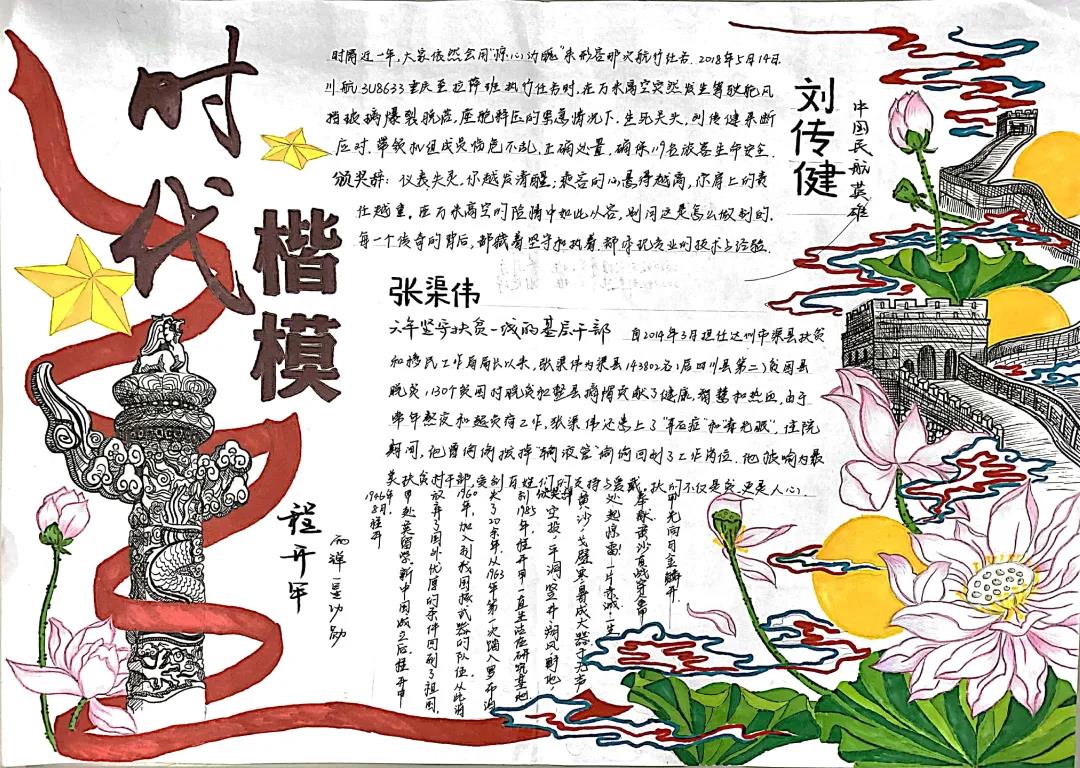 时代
楷模
时隔近一年，大家依然会用“惊心动魄”来形容那次航行任务。2018年5月14日
川航3U8633重庆至拉萨班执行任务时，在万米高空突然发生驾驶舱风
挡玻璃爆裂脱落，座舱释压的紧急情况下，生死关头，刘传健果断
应对，带领机组成员临危不乱，正确处置，确保119名旅客生命安全。
颁奖辞：仪表失灵，你越发清醒；乘客的心悬得越高，你肩上的责
任越重。在万米高空的险情中如此从容，别问这是怎么做到的，
每一个传奇的背后，都藏着坚守和执着，都体现专业的技术与经验。
刘传健
中国民航英雄
张渠伟
六年坚守扶贫一线的基层干部
自2014年3月担任达州市渠县扶贫
和移民工作局局长以来，张渠伟为渠县143802名，居四川县第二）贫困县
脱贫，130个贫困村脱贫和整县摘帽贡献了健康，智慧和热血，由于
常年熬夜和超负荷工作，张渠伟还患上了“耳石症”和“青光眼”，住院
期间，他曾悄悄拔掉“输液管”偷偷回到了工作岗位。他被
扶贫 干部，受到百姓们的支持与爱戴，扶的不仅是贫，更是人心。
程开甲
两弹一星功勋
1946年
8月，程开
甲赴英留学，新中国成立后，程开甲
放弃了国外优厚的条件回到了祖国，
1960年，加入到我国核武器的队伍，从此消
失了20余年，从1963年第一次踏入罗布泊
到1985年，程开甲一直生活在研究基地
空投、平洞、竖井，朔风野地，
黄沙，戈壁寒，易成大器于无声
处起惊雷！一片赤诚，一生
奉献，黄沙百战穿金甲
甲光向日金鳞开。